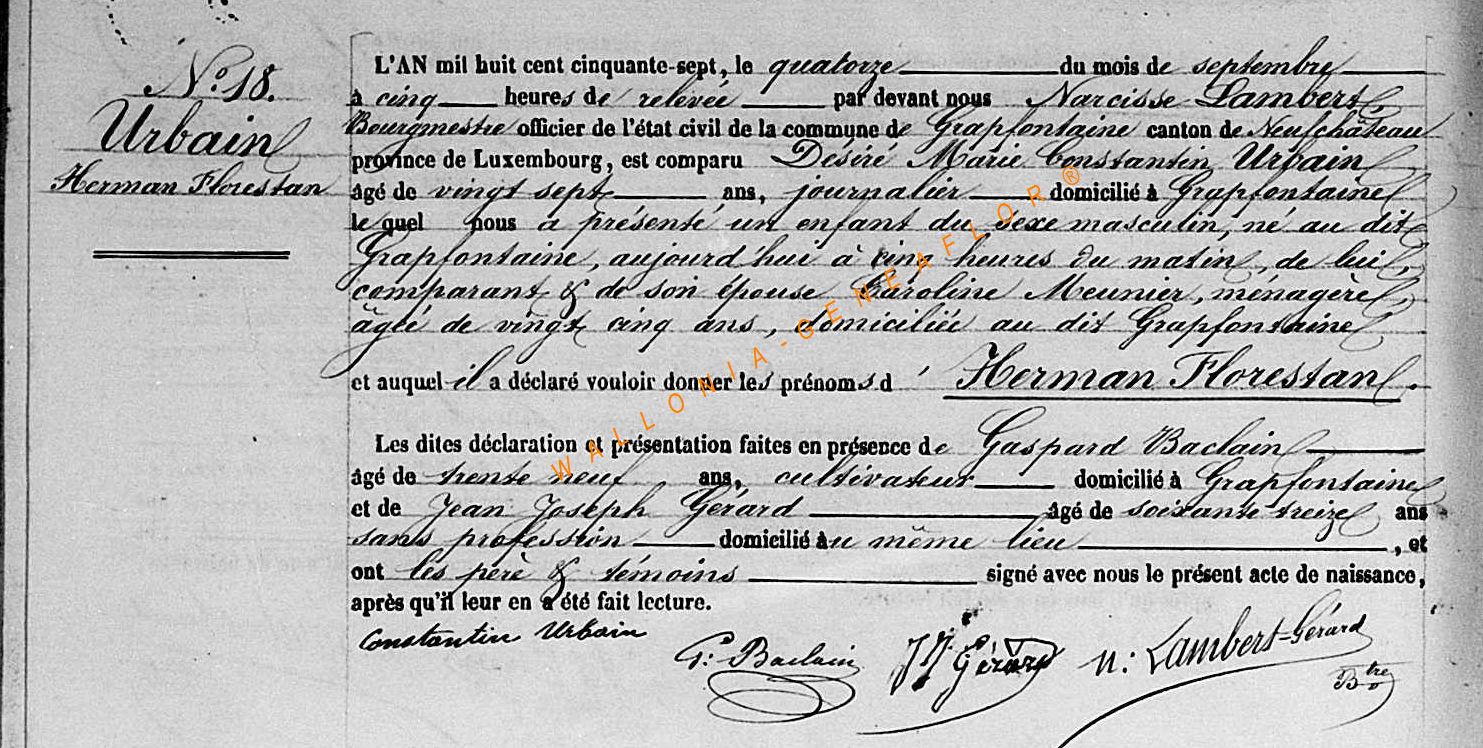 N° 18.
Urbain
Herman Florestan
L'AN mil huit cent cinquante-sept, le quatorze du mois de septembre
à cinq heures de relevée par devant nous Narcisse Lambert,
Bourgmestre officier de l'état civil de la commune de Grapfontaine canton de Neufchâteau
province de Luxembourg, est comparu Désiré Marie Constantin Urbain
âgé de vingt sept ans, journalier domicilié à Grapfontaine
le quel nous a présenté un enfant du sexe masculin, né au dit
Grapfontaine, aujourd'hui à cinq heures du matin, de lui,
comparant & de son épouse Caroline Meunier, ménagère,
âgée de vingt cinq ans, domiciliée au dit Grapfontaine
et auquel il a déclaré vouloir donner les prénoms d' Herman Florestan.
Les dites déclaration et présentation faites en présence de Gaspard Baclain
âgé de trente neuf ans, cultivateur domicilié à Grapfontaine
et de Jean Joseph Gérard âgé de soixante treize ans
sans profession domicilié au même lieu, et
ont les père & témoins signé avec nous le présent acte de naissance,
après qu'il leur en a été fait lecture.
Constantin Urbain
G: Baclain
JJ Gérard
N: Lambert-Gérard
Btre
WALLONIA-GENEAFLOR®